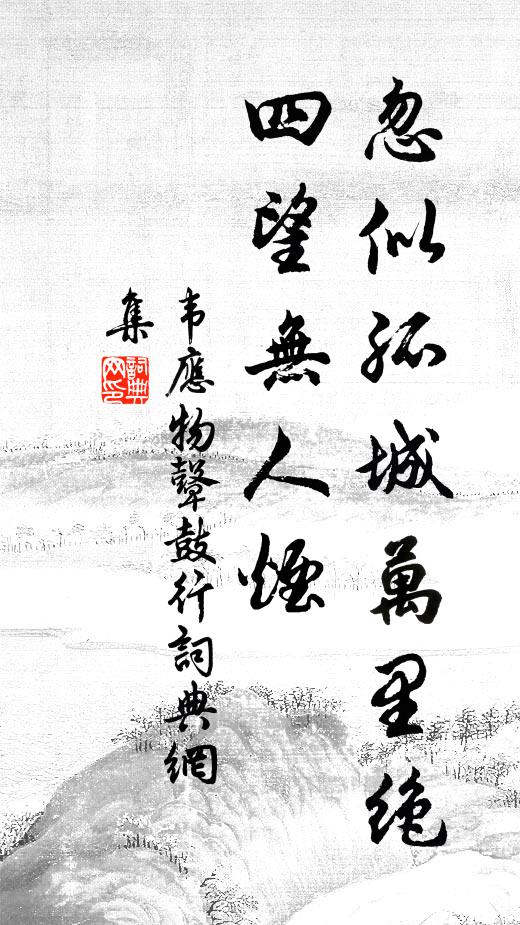 忽似孤城萬里絶
四望無人煙
韦應物鼙鼓行詞典網
集
詞典
网印